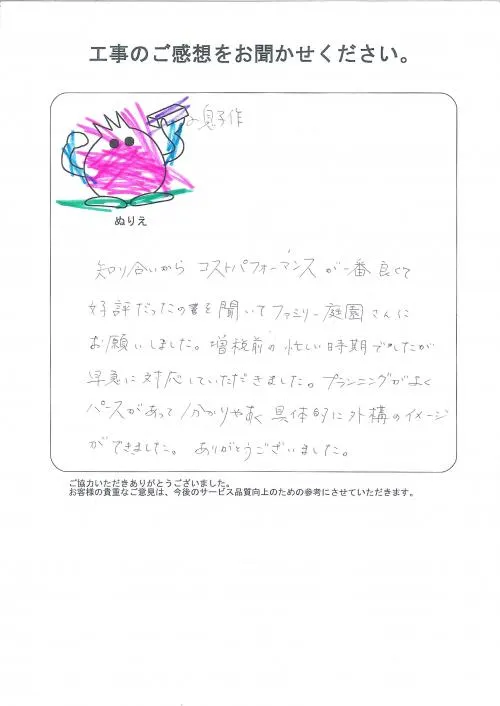 工事のご感想をお聞かせください。
の息子作
ぬりえ
知り合いから コストパフォーマンスが一番良くて
好評だったのを聞いてファミリー庭園さんに
お願いしました。増税前の忙しい時期でしたが
早急に対応していただきました。プランニングがよく
パースがあって分かりやすく具体的に外構のイメージ
ができました。ありがとうございました。
ご協力いただきありがとうございました。
お客様の貴重なご意見は、今後のサービス品質向上のための参考にさせていただきます。